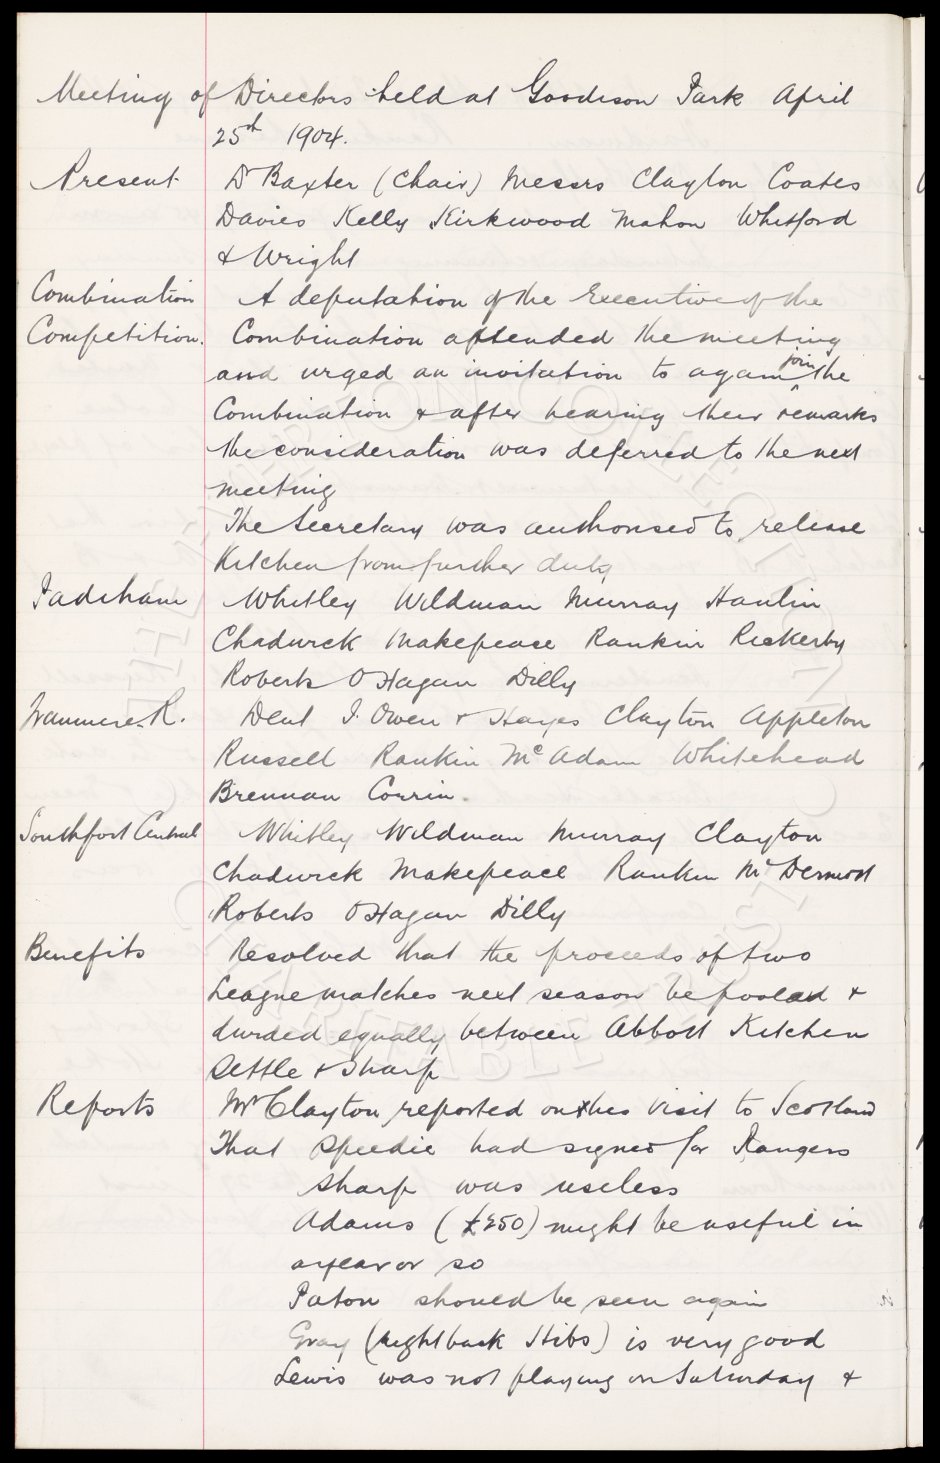 Meeting of Directors held at Goodison Park April
25th 1904.
Present Dr Baxter (Chair) Messrs Clayton Coates
Davies Kelly Kirkwood Mahon Whitford
& Wright
Combination A deputation of the Executive of the
Competition. Combination attended the meeting
and urged an invitation to again join the
Combination & after hearing their remarks
the consideration was deferred to the next
meeting
The Secretary was authorised to release
Kitchen from further duty
Padiham Whitley Wildman Murray Hanlin
Chadwick Makepeace Rankin Rickerby
Roberts O'Hagan Dilly
Tranmere R. Dent J. Owen & Hayes Clayton Appleton
Russell Rankin McAdam Whitehead
Brennan Corrin.
Southport Central Whitley Wildman Murray Clayton
Chadwick Makepeace Rankin McDermott
Roberts O'Hagan Dilly
Benefits Resolved that the proceeds of two
League matches next season be pooled &
divided equally between Abbott Kitchen
Settle & Sharp
Reports Mr Clayton reported on his visit to Scotland
That Speedie had signed for Rangers
Sharp was useless
Adams (£250) might be useful in
a year or so
Paton should be seen again
Gray (right back Hibs) is very good
Lewis was not playing on Saturday &